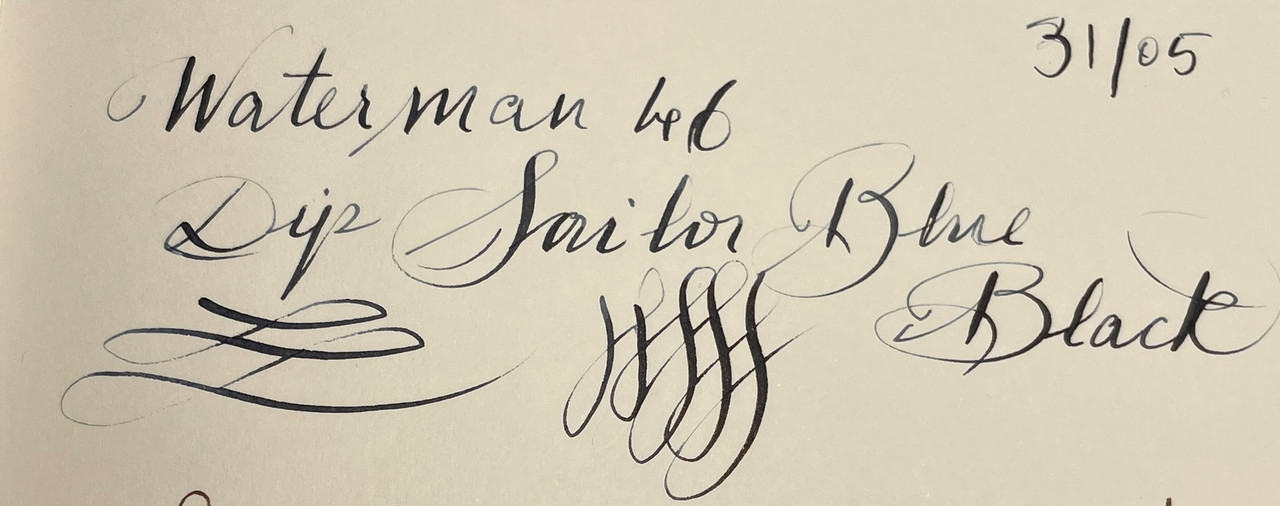 31/05
Waterman 46
Dip Sailor Blue
Black